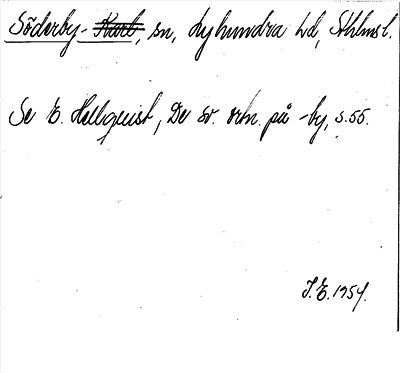 Söderby-Karl, sn, Lyhundra hd, Sthlmsl.
Se E. Hellquist, De sv. ortn. på -by, s. 55.
I.E. 1954.